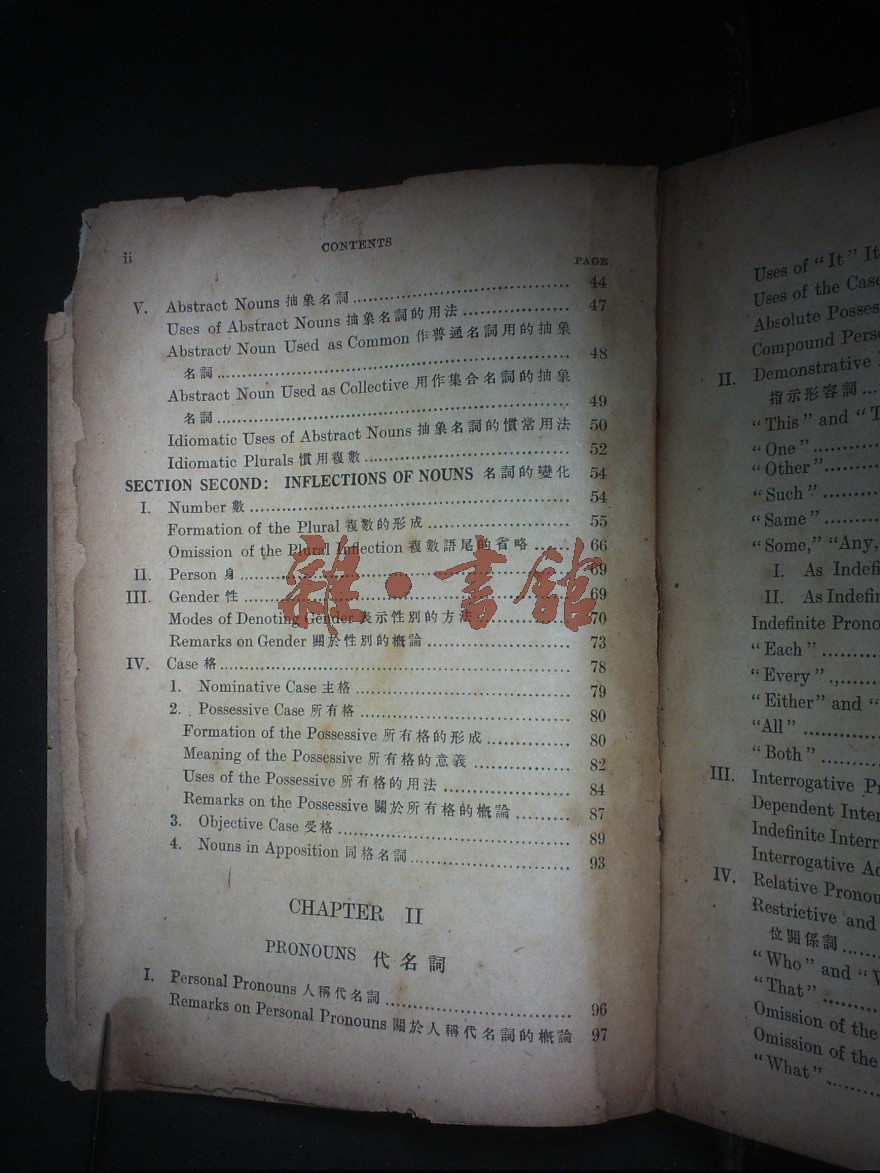 ii
CONTENTS
PAGE
V. Abstract Nouns 抽象名詞 ........ 44
Uses of Abstract Nouns 抽象名詞的用法 ........ 47
Abstract Noun Used as Common 作普通名詞用的抽象
名詞 ........ 48
Abstract Noun Used as Collective 用作集合名詞的抽象
名詞 ........ 49
Idiomatic Uses of Abstract Nouns 抽象名詞的慣常用法 50
Idiomatic Plurals 慣用複數 ........ 52
SECTION SECOND: INFLECTIONS OF NOUNS 名詞的變化 54
I. Number 數 ........ 54
Formation of the Plural 複數的形成 ........ 55
Omission of the Plural Inflection 複數語尾的省略 ...... 66
II. Person 身 ........ 69
III. Gender 性 ........ 69
Modes of Denoting Gender 表示性別的方法 ........ 70
Remarks on Gender 關於性別的概論 ........ 73
雜·書館
IV. Case 格 ........ 78
1. Nominative Case 主格 ........ 79
2. Possessive Case 所有格 ........ 80
Formation of the Possessive 所有格的形成 ........ 80
Meaning of the Possessive 所有格的意義 ........ 82
Uses of the Possessive 所有格的用法 ........ 84
Remarks on the Possessive 關於所有格的概論 ........ 87
3. Objective Case 受格 ........ 89
4. Nouns in Apposition 同格名詞 ........ 93
CHAPTER II
PRONOUNS 代名詞
I. Personal Pronouns 人稱代名詞 ........ 96
Remarks on Personal Pronouns 關於人稱代名詞的概論 97
Uses of "It" It
Uses of the Case
Absolute Possess
Compound Pers
II. Demonstrative
指示形容詞 ...
"This" and "T
"One" ........
"Other" ........
"Such" ........
"Same" ........
"Some," "Any,
I. As Indefi
II. As Indefin
Indefinite Prono
"Each" ........
"Every" ........
"Either" and "
"All" ........
"Both" ........
III. Interrogative Pr
Dependent Inter
Indefinite Interr
Interrogative Ad
IV. Relative Pronou
Restrictive and
位關係詞 ........
"Who" and "W
"That" ........
Omission of the
Omission of the
"What" ........